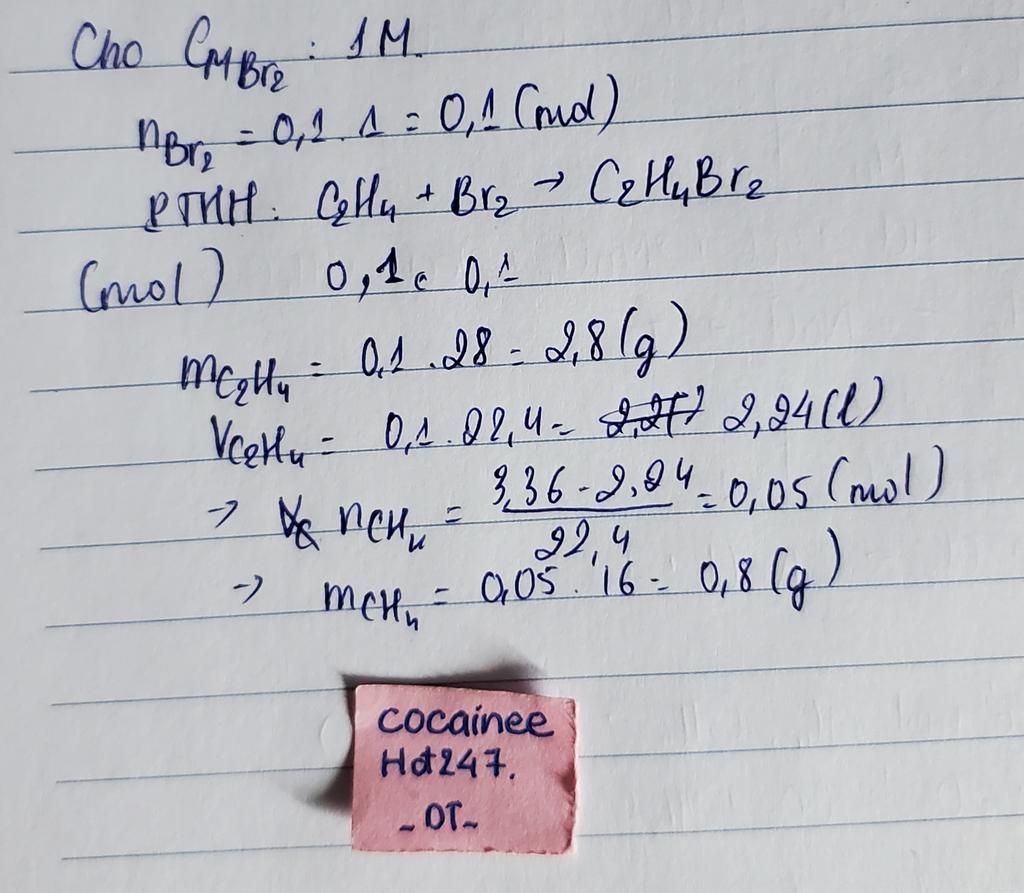 Cho CMBr2: 1M.
nBr2 = 0,1 . 1 = 0,1 (mol)
PTHH: C2H4 + Br2 → C2H4Br2
(mol) 0,1 ← 0,1
mC2H4 = 0,1 . 28 = 2,8 (g)
VC2H4 = 0,1 . 22,4 = 2,24 (l)
→ nCH4 = 3,36 - 2,24 / 22,4 = 0,05 (mol)
→ mCH4 = 0,05 . 16 = 0,8 (g)
cocainee
Hot247.
~ OT ~